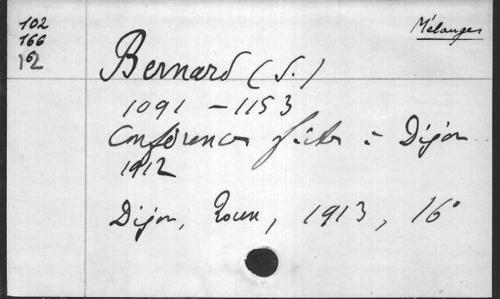 102
166
12
Mélanges
Bernard (S.)
1091 - 1153
Conférences faites à Dijon
1912
Dijon, 1913, 16°